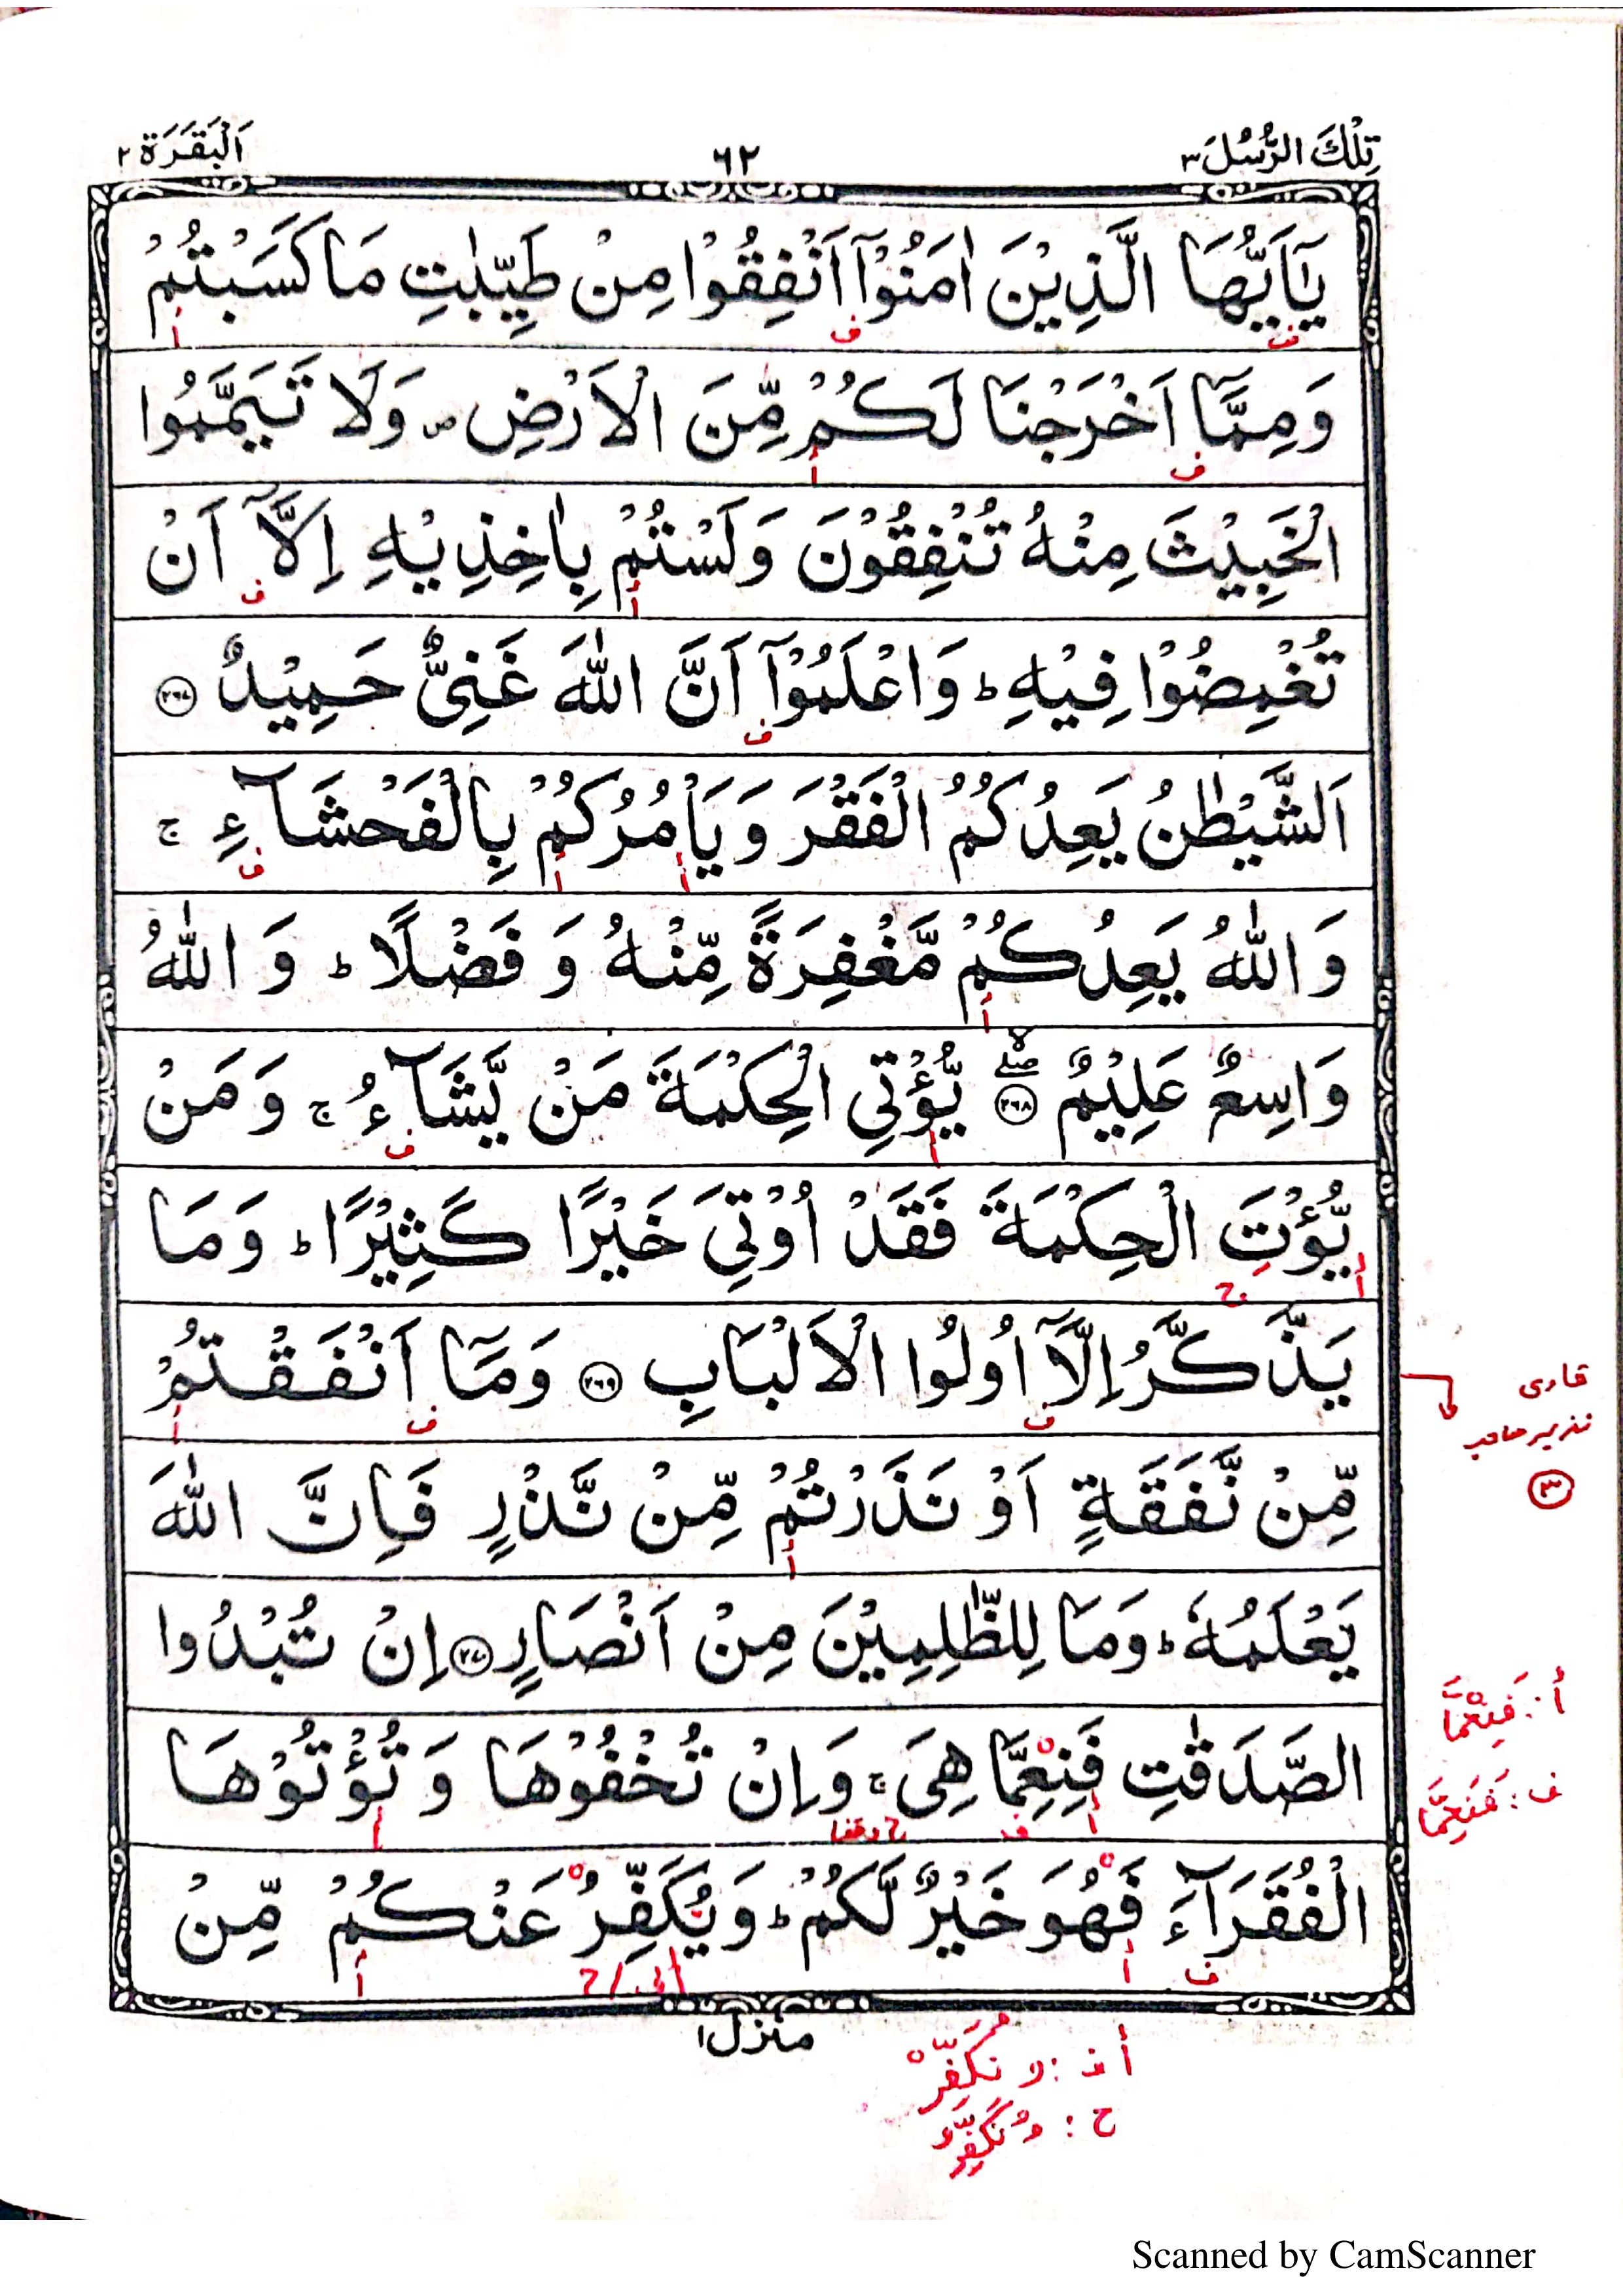 تِلْكَ الرُّسُلُ ٣
٦٢
اَلْبَقَرَة ٢
يٰۤاَيُّهَا الَّذِيْنَ اٰمَنُوْۤا اَنْفِقُوْا مِنْ طَيِّبٰتِ مَا كَسَبْتُمْ
وَمِمَّاۤ اَخْرَجْنَا لَكُمْ مِّنَ الْاَرْضِ ۪ وَلَا تَيَمَّمُوا
الْخَبِيْثَ مِنْهُ تُنْفِقُوْنَ وَلَسْتُمْ بِاٰخِذِيْهِ اِلَّاۤ اَنْ
تُغْمِضُوْا فِيْهِ ؕ وَاعْلَمُوْۤا اَنَّ اللّٰهَ غَنِيٌّ حَمِيْدٌ ٢٦٧
اَلشَّيْطٰنُ يَعِدُكُمُ الْفَقْرَ وَيَاْمُرُكُمْ بِالْفَحْشَآءِ ۚ
وَاللّٰهُ يَعِدُكُمْ مَّغْفِرَةً مِّنْهُ وَ فَضْلًا ؕ وَ اللّٰهُ
وَاسِعٌ عَلِيْمٌ ٢٦٨ يُّؤْتِى الْحِكْمَةَ مَنْ يَّشَآءُ ۚ وَمَنْ
يُّؤْتَ الْحِكْمَةَ فَقَدْ اُوْتِيَ خَيْرًا كَثِيْرًا ؕ وَمَا
يَذَّكَّرُ اِلَّاۤ اُولُوا الْاَلْبَابِ ٢٦٩ وَمَاۤ اَنْفَقْتُمْ
قاری
نذیر
٣
مِّنْ نَّفَقَةٍ اَوْ نَذَرْتُمْ مِّنْ نَّذْرٍ فَاِنَّ اللّٰهَ
يَعْلَمُهٗ ؕ وَمَا لِلظّٰلِمِيْنَ مِنْ اَنْصَارٍ ٢٧٠ اِنْ تُبْدُوا
الصَّدَقٰتِ فَنِعِمَّا هِيَ ۚ وَاِنْ تُخْفُوْهَا وَ تُؤْتُوْهَا
أ: فَنِعْمَّا
ف: فَنَعِمَّا
الْفُقَرَآءَ فَهُوَ خَيْرٌ لَّكُمْ ؕ وَيُكَفِّرُ عَنْكُمْ مِّنْ
منزل ١
نُكَفِّرْ
ح: نُكَفِّرُ
Scanned by CamScanner